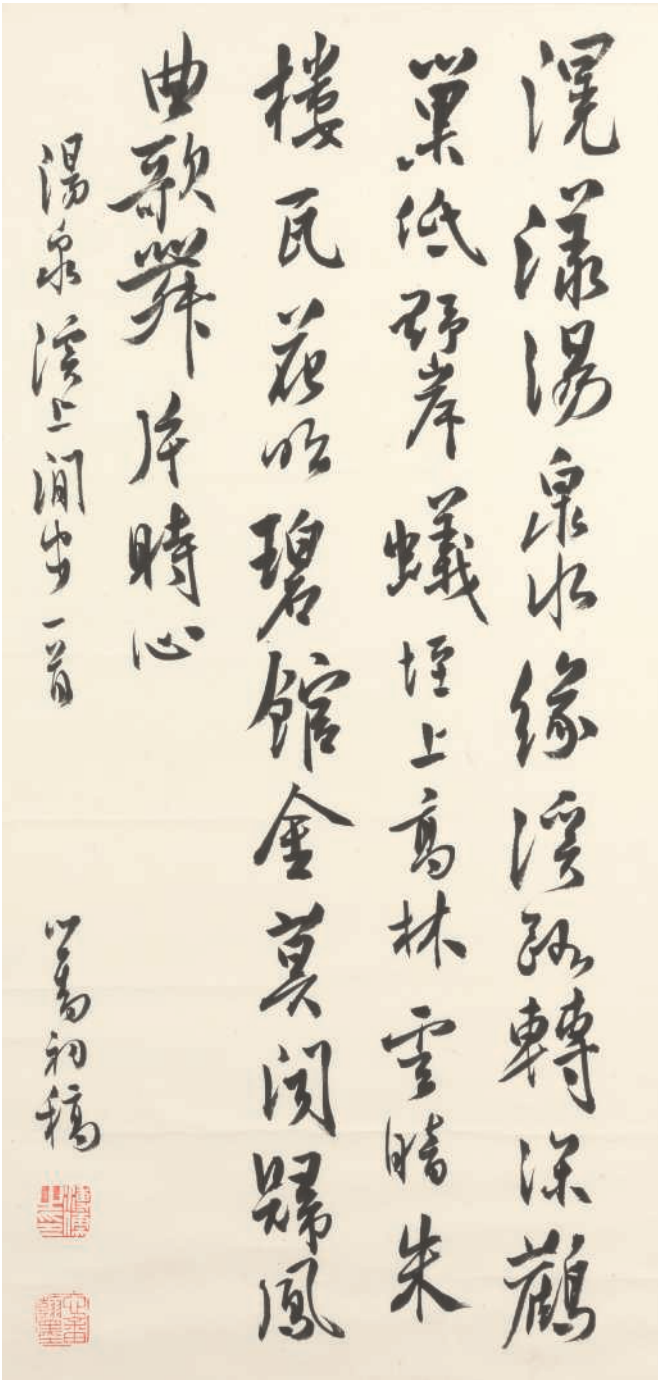 滉漾湯泉水緣溪路轉深鸛
巢低野岸蟻垤上高林雲暗朱
樓瓦花明碧館金莫聞歸鳳
曲歌舞片時心
湯泉溪上閒步一首 心畬初稿